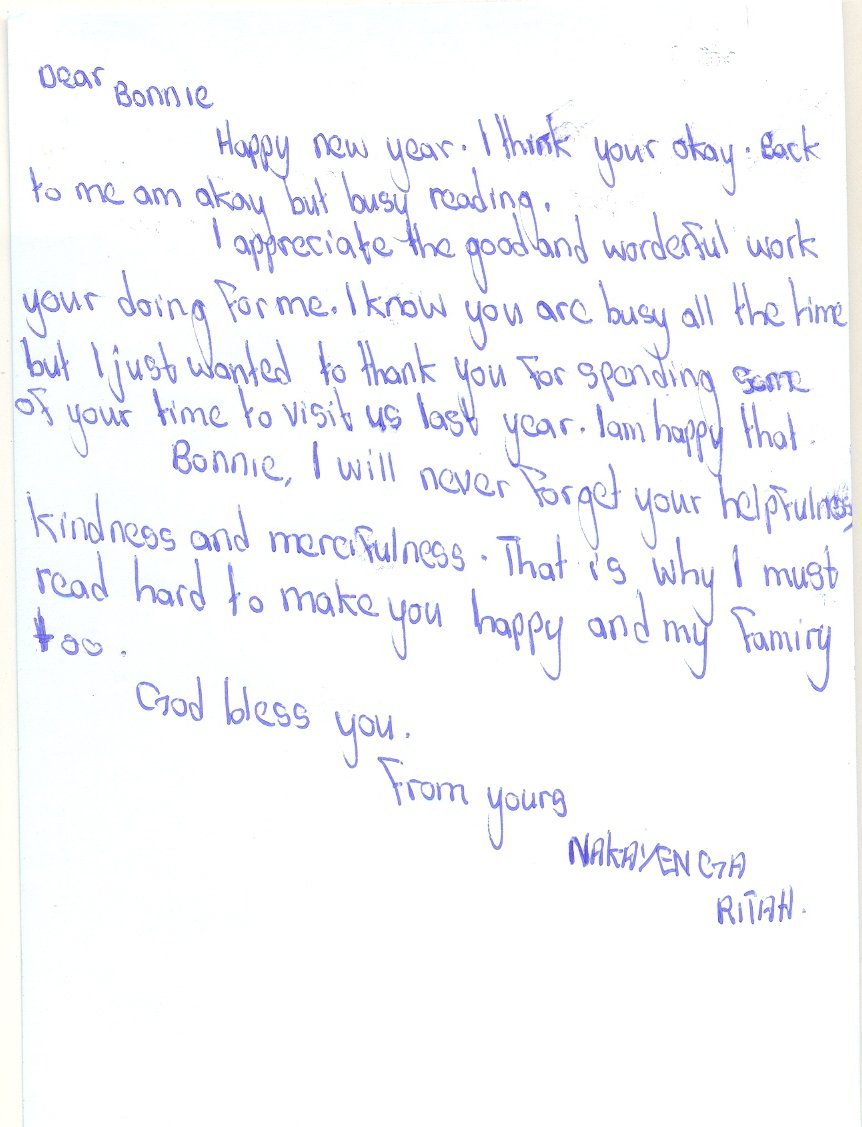 Dear Bonnie
Happy new year. I think your okay. Back
to me am akay but busy reading.
I appreciate the good and worderful work
your doing for me. I know you are busy all the time
but I just wanted to thank you for spending some
of your time to visit us last year. Iam happy that.
Bonnie, I will never forget your helpfulness
kindness and mercifulness. That is why I must
read hard to make you happy and my famiry
too.
God bless you.
From yours
NAKAYENGA
RITAH.